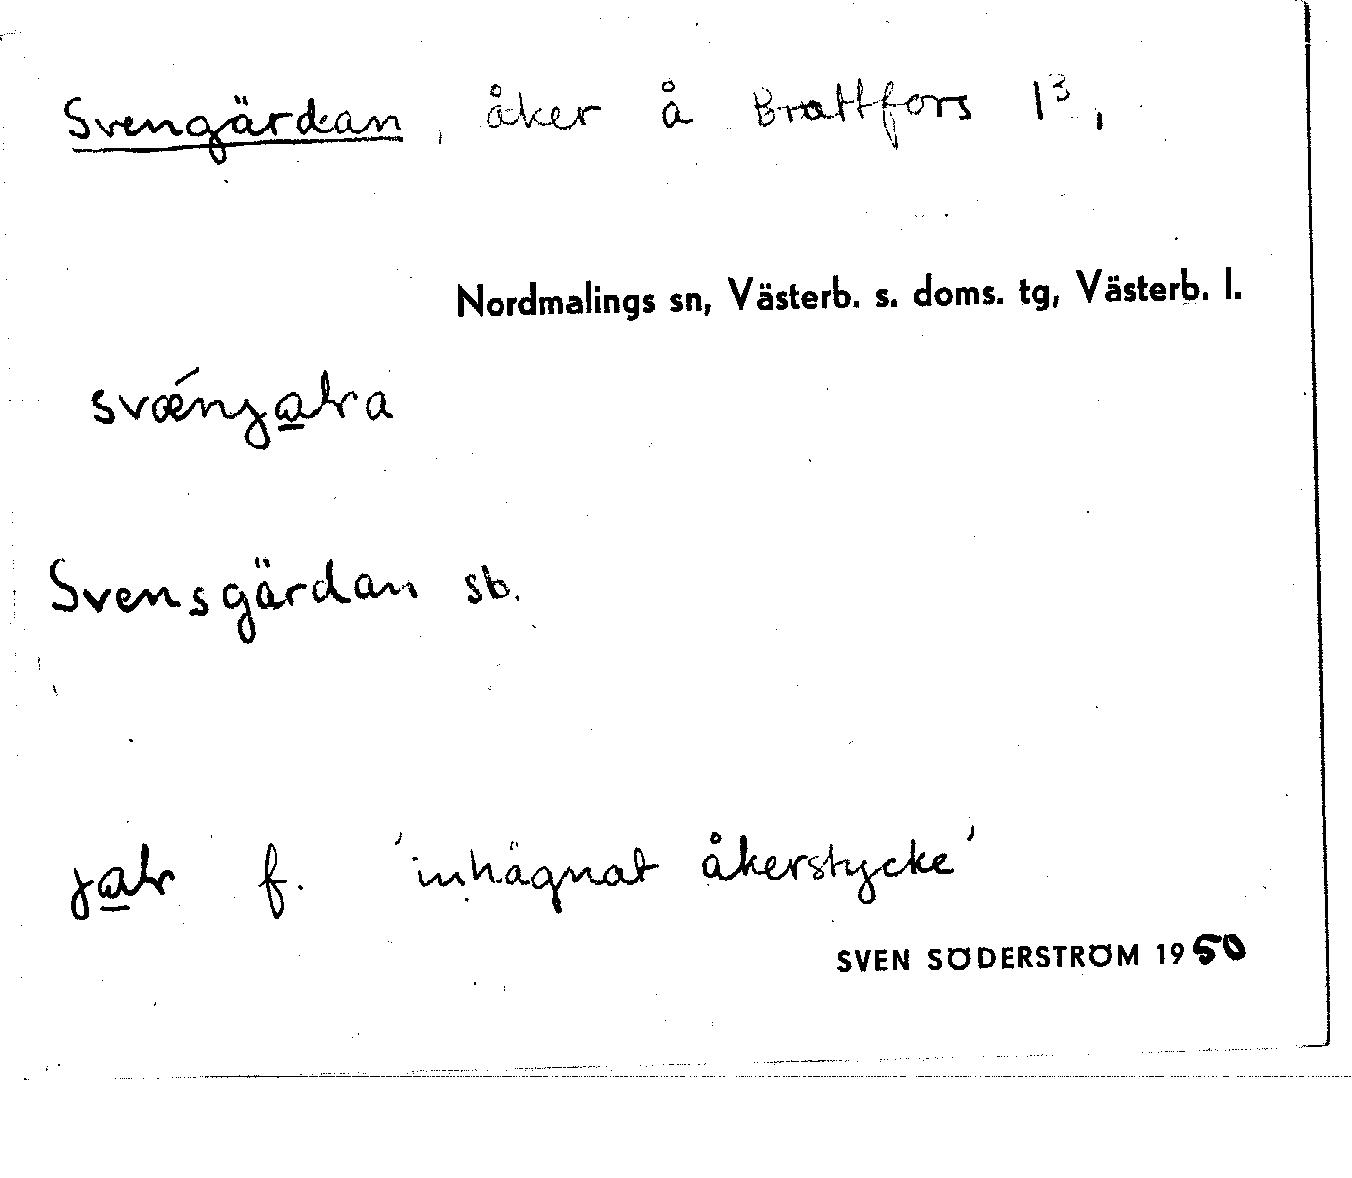 Svengärdan, åker å Brattfors 1³,
Nordmalings sn, Västerb. s. doms. tg, Västerb. l.
Svensgärdan sb.
f. 'inhägnat åkerstycke'
SVEN SÖDERSTRÖM 1950